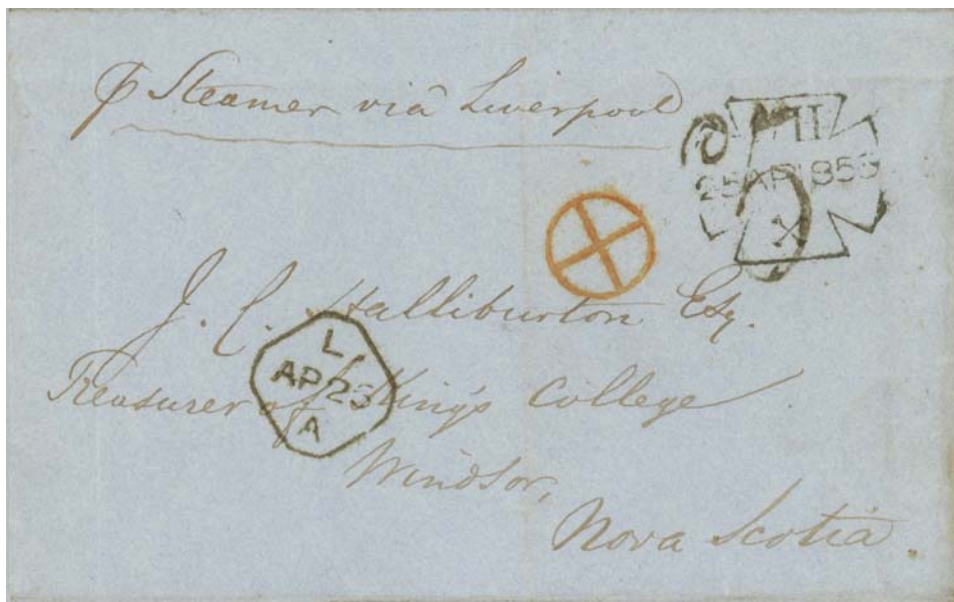 ℘ Steamer viâ Liverpool
II
25AP1853
X
J. C. Halliburton Esq.
L
AP25
A
Treasurer of King's College
Windsor,
Nova Scotia.